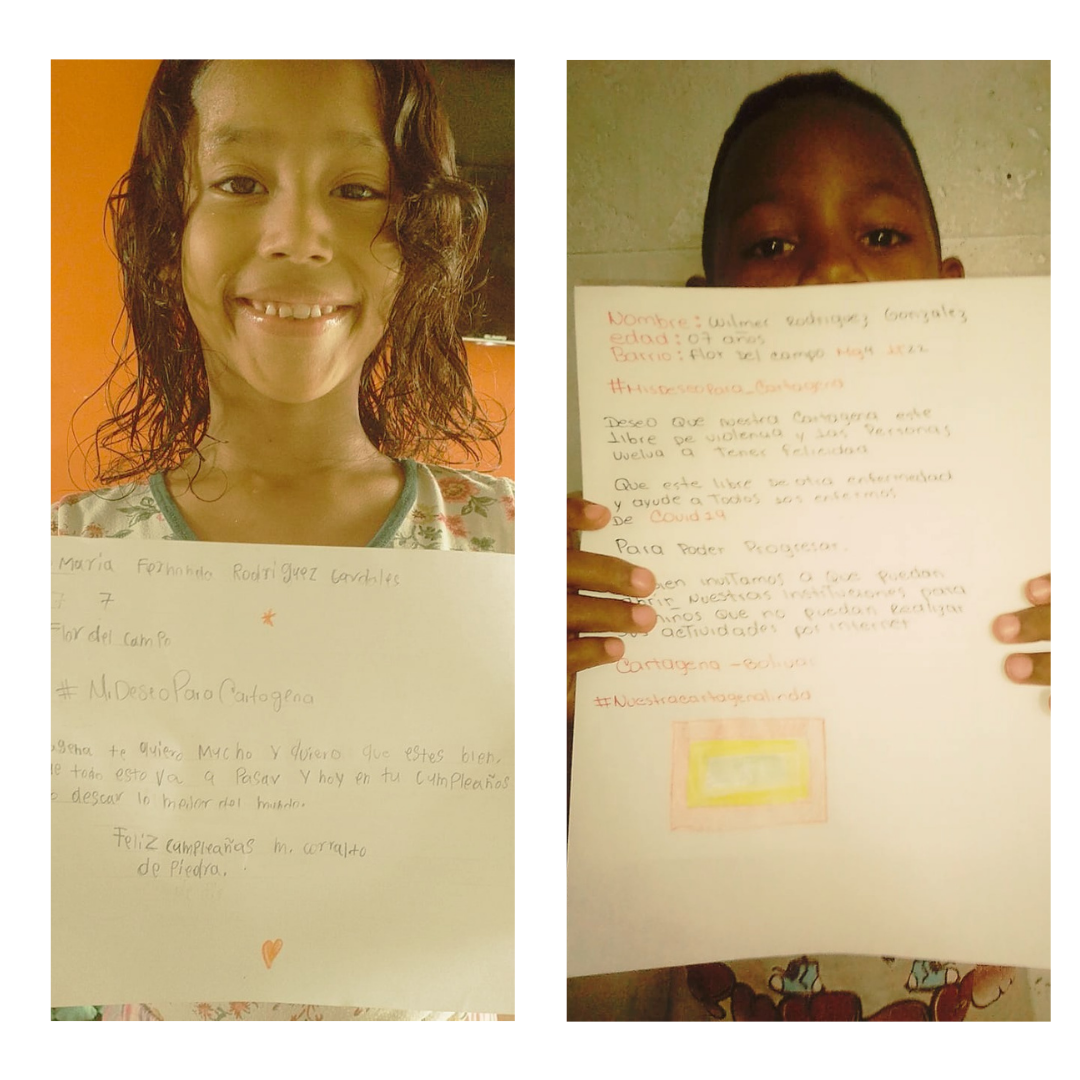 Maria Fernanda Rodriguez
7
Flor del campo
# MiDeseoParaCartagena
te quiero mucho y quiero que estes bien.
todo esto va a Pasar y hoy en tu cumpleaños
descar lo mejor del mundo.
Feliz cumpleañas m. corralto
de Piedra.
Nombre: Wilmer Rodriguez Gonzalez
edad: 07 años
Barrio: flor del campo Mz4 Lt22
#MisDeseoPara_Cartagena
Deseo Que nuestra Cartagena este
libre de violencia y las Personas
vuelva a Tener felicidad
Que este libre de otra enfermedad
y ayude a Todos los enfermos
De Covid19
Para Poder Progresar.
invitamos a Que puedan
nuestras instituciones para
niños que no puedan Realizar
sus actividades por internet
Cartagena - Bolivar
#Nuestracartagenalinda